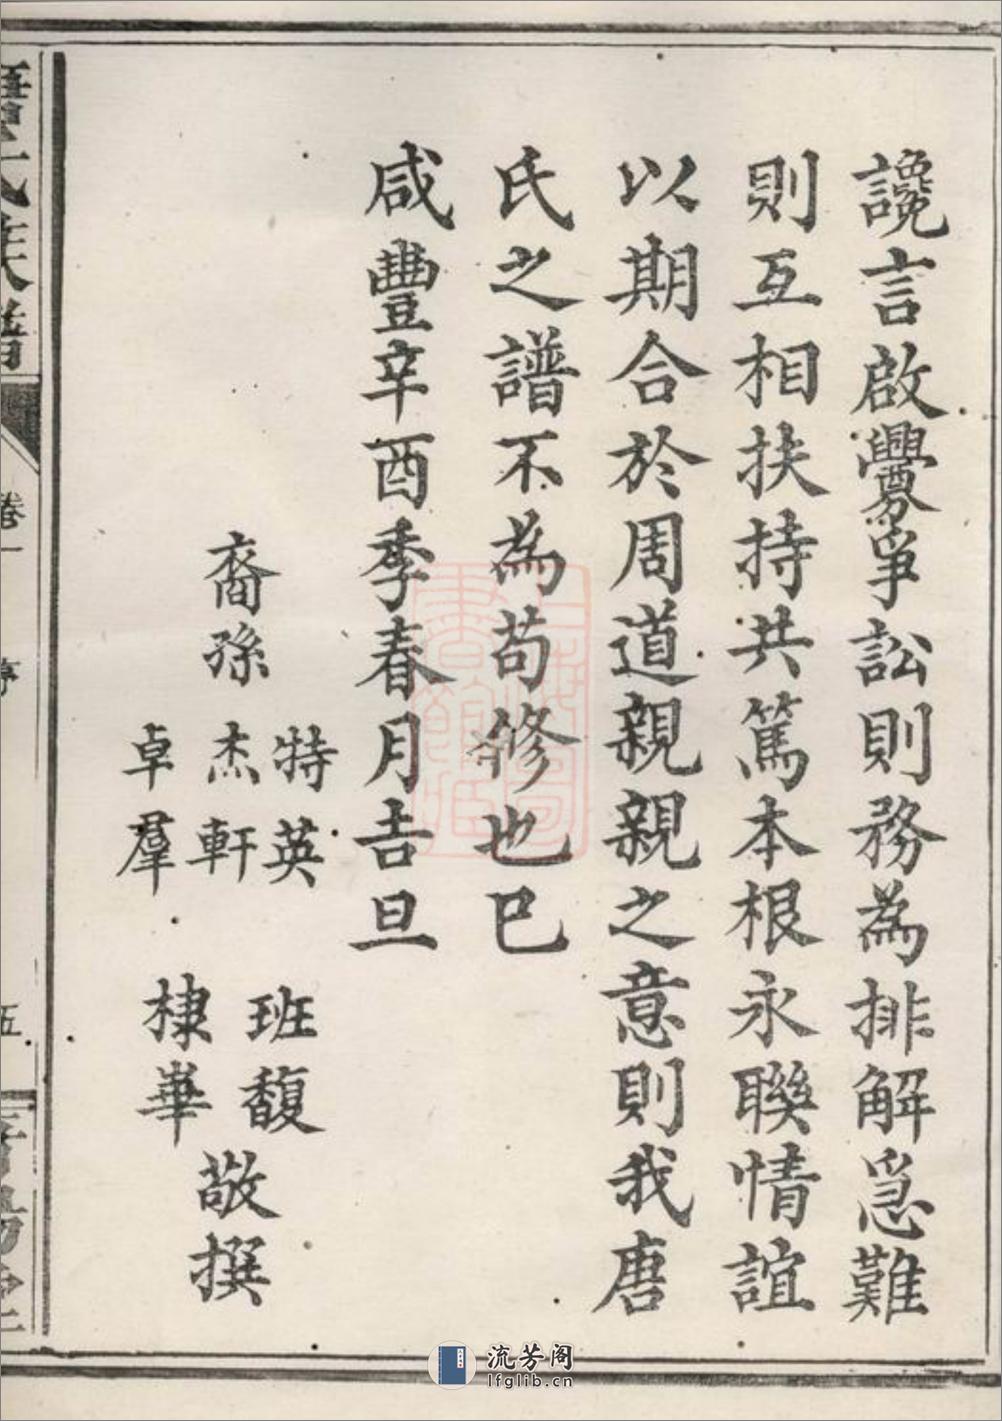 讒言啟釁爭訟則務為排解急難
則互相扶持共篤本根永聯情誼
以期合於周道親親之意則我唐
氏之譜不為苟修也已
咸豐辛酉季春月吉旦
裔孫
特英
杰軒
卓羣
班馥
棣華
敬撰
唐氏族譜
卷一
序
五
晉陽堂
流芳阁
lfglib.cn